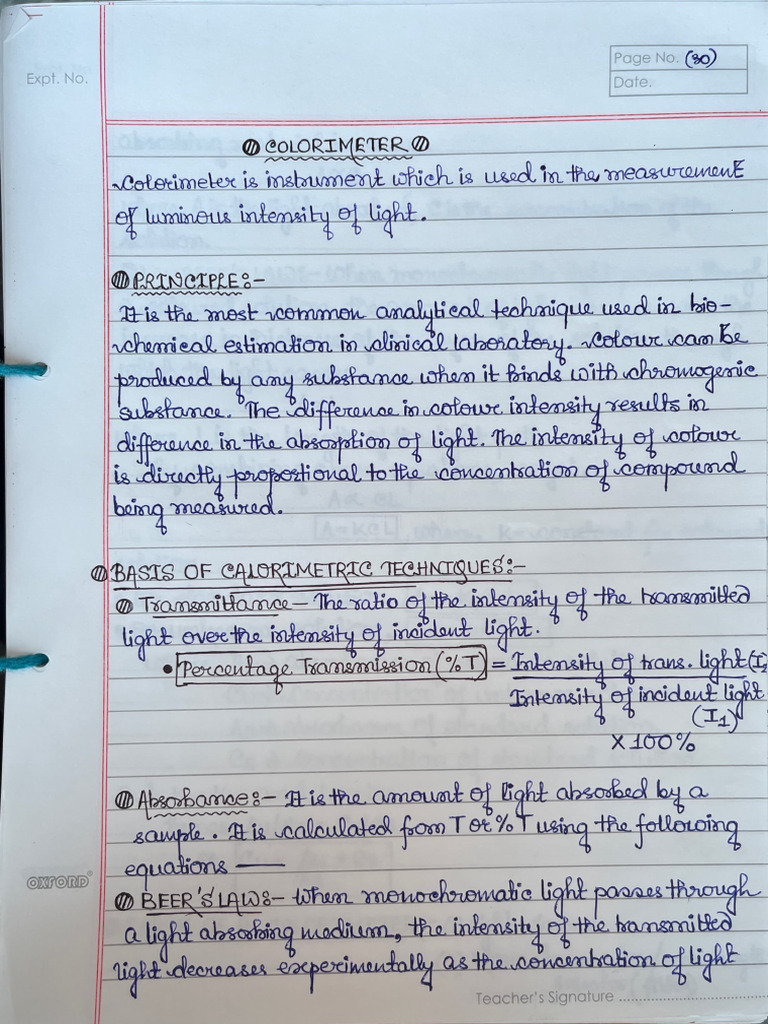 Expt. No.
Page No. (30)
Date.
COLORIMETER
Colorimeter is instrument which is used in the measurement
of luminous intensity of light.
PRINCIPLE:-
It is the most common analytical technique used in bio-
chemical estimation in clinical laboratory. Colour can be
produced by any substance when it binds with chromogenic
substance. The difference in colour intensity results in
difference in the absorption of light. The intensity of colour
is directly propostional to the concentration of compound
being measured.
BASIS OF CALORIMETRIC TECHNIQUES:-
Transmittance - The ratio of the intensity of the transmitted
light over the intensity of incident light.
• Percentage Transmission (%T) = Intensity of trans. light (I
Intensity of incident light
(I1)
X 100%
Absorbance:- It is the amount of light absorbed by a
sample. It is calculated from T or %T using the following
equations —
BEER'S LAW:- When monochromatic light passes through
a light absorbing medium, the intensity of the transmitted
light decreases experimentally as the concentration of light
OXFORD
Teacher's Signature ..........................